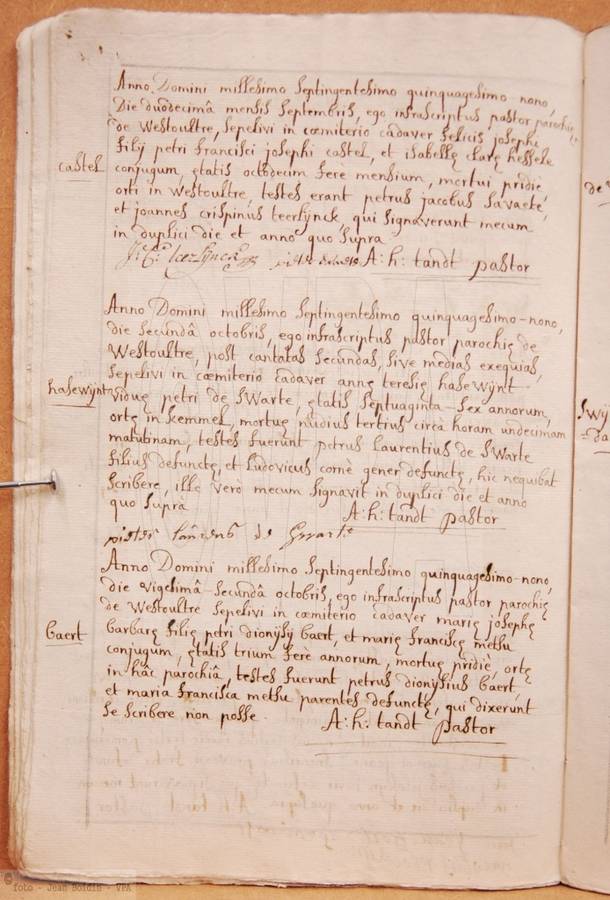 Anno Domini millesimo septingentesimo quinquagesimo nono,
die duodecimâ mensis septembris, ego infrascriptus pastor parochię
de Westoultre, sepelivi in cœmiterio cadaver felicis josephi
castel
filij petri francisci josephi castel, et isabellę clarę hessele
conjugum, ętatis octodecim fere mensium, mortui pridie
orti in Westoultre, testes erant petrus jacobus savaete,
et joannes crispinus teerlynck qui signaverunt mecum
in duplici die et anno quo supra
A: h: tandt pastor
Anno Domini millesimo septingentesimo quinquagesimo-nono,
die secundâ octobris, ego infrascriptus pastor parochię de
Westoultre, post cantatas secundas, sive medias exequias,
sepelivi in cœmiterio cadaver annę teresię hasewÿnt
hasewÿnt
viduę petri de swarte, ętatis septuaginta-sex annorum,
ortę in kemmel, mortuę nudius tertius circa horam undecimam
matutinam, testes fuerunt petrus laurentius de swarte
filius defunctę, et ludovicus cornè gener defunctę, hic nequibat
scribere, ille verò mecum signavit in duplici die et anno
quo supra
A: h: tandt pastor
pieter de swarte
Anno Domini millesimo septingentesimo quinquagesimo-nono,
die vigesimâ-secundâ octobris, ego infrascriptus pastor parochię
de Westoultre sepelivi in cœmiterio cadaver marię josephę
baert
barbarę filię petri dionysij baert, et marię franciscę metsu
conjugum, ętatis trium ferè annorum, mortuę pridiè, ortę
in hâc parochiâ, testes fuerunt petrus dionysius baert,
et maria francisca metsu parentes defunctę, qui dixerunt
se scribere non posse.
A: h: tandt pastor
foto - Jean Boidin - VPA